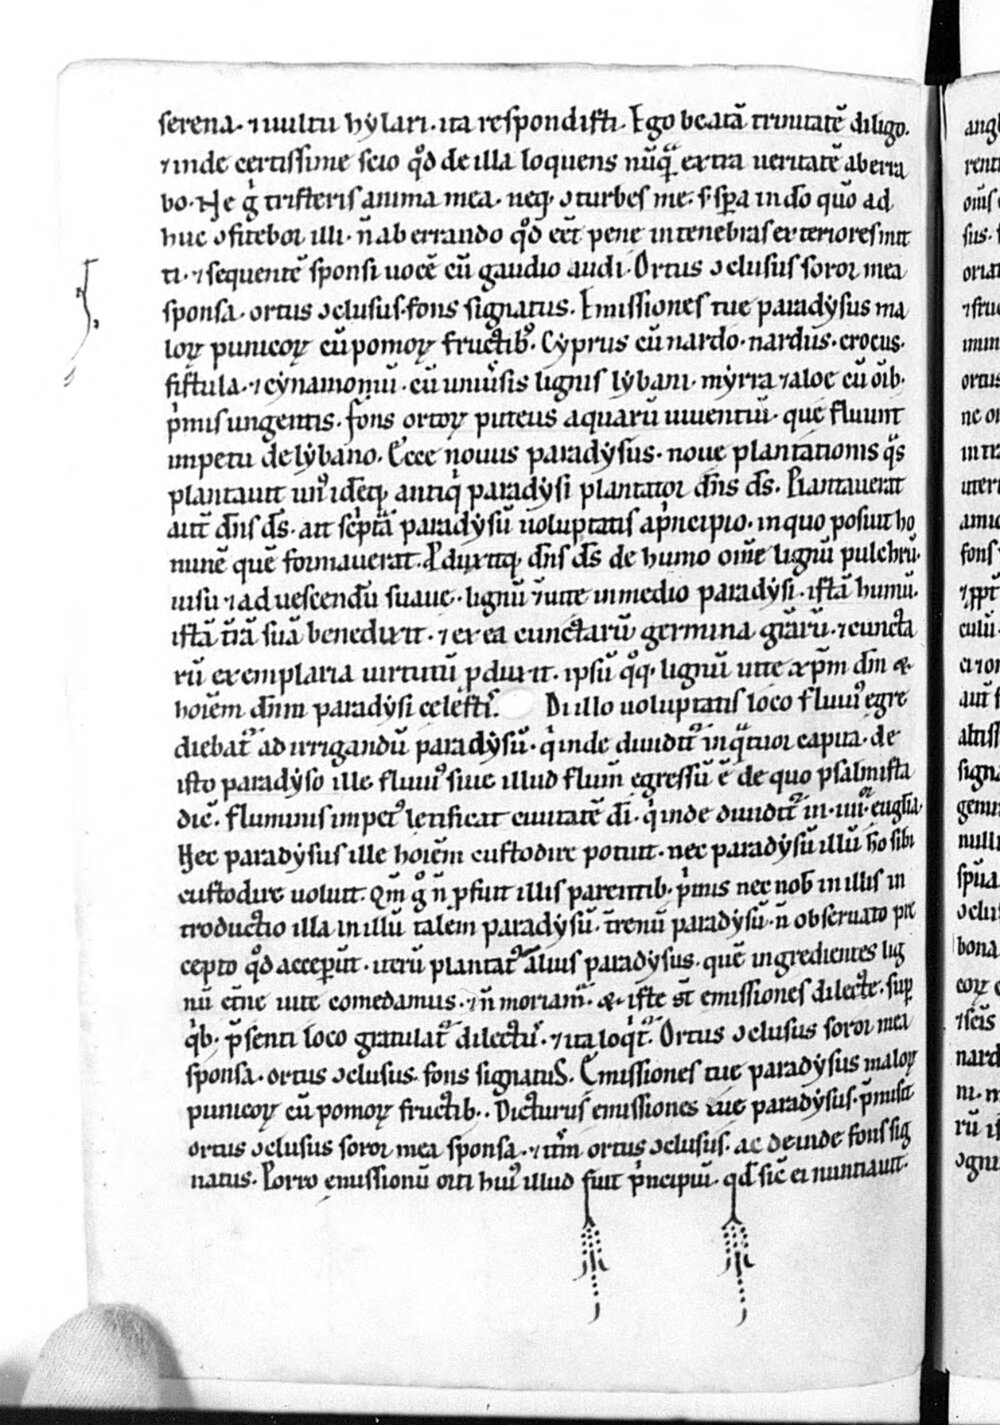 serena · ⁊ uultu hylari · ita respondisti · Ego beatā trinitatē diligo ·
⁊ inde certissime scio qͦd de illa loquens nūqᵃ extra ueritatē aberra
bo · Ne gͥ tristeris anima mea · neqꝫ ↄturbes me · s· sꝑa in dō quō ad
huc ↄfitebor illi · n̄ aberrando qͦd eēt pene in tenebras exteriores mit
ti · ⁊ sequentē sponsi uocē cū gaudio audi · Ortus ↄclusus soror mea
sponsa · ortus ↄclusus · fons signatus · Emissiones tue paradysus ma
loꝝ punicoꝝ cū pomoꝝ fructibꝰ · Cyprus cū nardo · nardus · crocus ·
fistula · ⁊ cynamomū · cū uniūsis lignis lybani · myrra ⁊ aloe cū oīb ·
pͥmis ungentis · fons ortoꝝ puteus aquarū uiuentiū · que fluunt
impetu de lybano · Ecce nouus paradysus · noue plantationis qͣs
plantauit unꝰ idēqꝫ antiqͥ paradysi plantator dn̄s ds̄ · Plantauerat
aut̄ dn̄s ds̄ · ait scͥptā paradysū uoluptatis apͥncipio · in quo posuit ho
minē quē formauerat · ꝓduxitqꝫ dn̄s ds̄ de humo om̄e lignū pulchrū ·
uisu ⁊ ad uescendū suaue · lignū ⁊ uite in medio paradysi · istā humū ·
istā t̄rā suā benedixit · ⁊ ex ea cunctarū germina grārū · ⁊ cuncta
rū exemplaria uirtutū ꝓduxit · ipsū qͦqꝫ lignū uite xp̄m dm̄ &
hoīem dn̄m paradysi celestiſ · Di illo uoluptatis loco fluuiꝰ egre
diebatꝰ ad irrigandū paradysū · qͥ inde diuiditꝰ in qͣtuor capita · de
isto paradyso ille fluuiꝰ siue illud flum̄ egressū ē de quo psalmista
dic̄ · fluminis impetꝰ letificat ciuitatē dī · qͥ inde diuiditꝰ in · iiiiᵒʳ · euglīa ·
Nec paradysus ille hoīem custodire potuit · nec paradysū illū hō sibi
custodire uoluit · Qm̄ gͦ n̄ ꝓfuit illis parentib · pͥmis nec nob̄ in illis in
troductio illa in illū talem paradysū · t̄renū paradysū · n̄ obseruato pre
cepto qͦd acceper̄ut · iterū plantatꝰ alius paradysus · quē ingredientes lig
nū et̄ne uite comedamus · ⁊ n̄ moriamꝰ · & iste st̄ emissiones dilecte · suꝑ
qͥb · p̄senti loco gratulatꝰ dilectuſ · ⁊ ita loqͥtꝰ · Ortus ↄclusus soror mea
sponsa · ortus ↄclusus · fons signatus · Emissiones tue paradysus maloꝝ
punicoꝝ cū pomoꝝ fructib · Dicturus emissiones tue paradysus · p̄misit
ortus ↄclusus soror mea sponsa · ⁊ itm̄ ortus ↄclusus · ac deinde fons sig
natus · Porro emissionū orti huiꝰ illud fuit pͥncipiū · qd̄ sic̄ ei nuntiauit ·